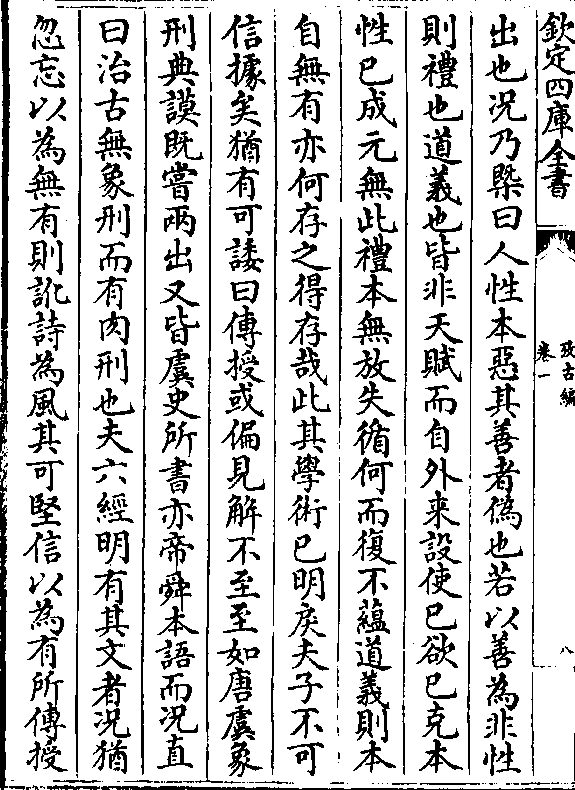 欽定四庫全書
攷古編
卷一
八
出也况乃槩曰人性本惡其善者僞也若以善為非性
則禮也道義也皆非天賦而自外来設使已欲已克本
性已成元無此禮本無放失循何而復不蘊道義則本
自無有亦何存之得存哉此其學術已明戾夫子不可
信據矣猶有可諉曰傳授或偏見解不至至如唐虞象
刑典謨既嘗兩出又皆虞史所書亦帝舜本語而况直
曰治古無象刑而有肉刑也夫六經明有其文者况猶
忽忘以為無有則訛詩為風其可堅信以為有所傳授